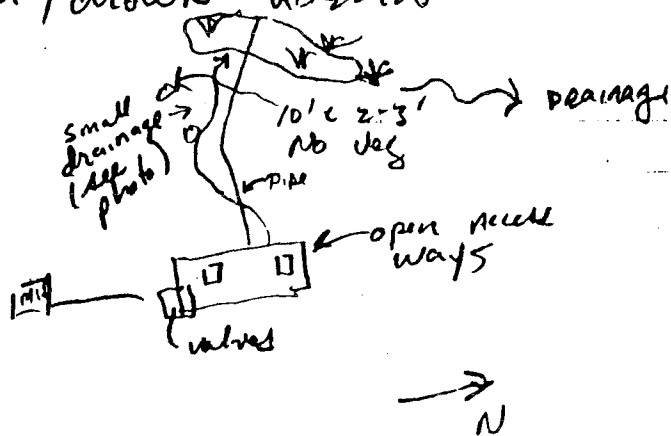 small
drainage
(see
photo)
10' x 2-3'
No Veg
Drainage
pipe
open access
ways
valves
N